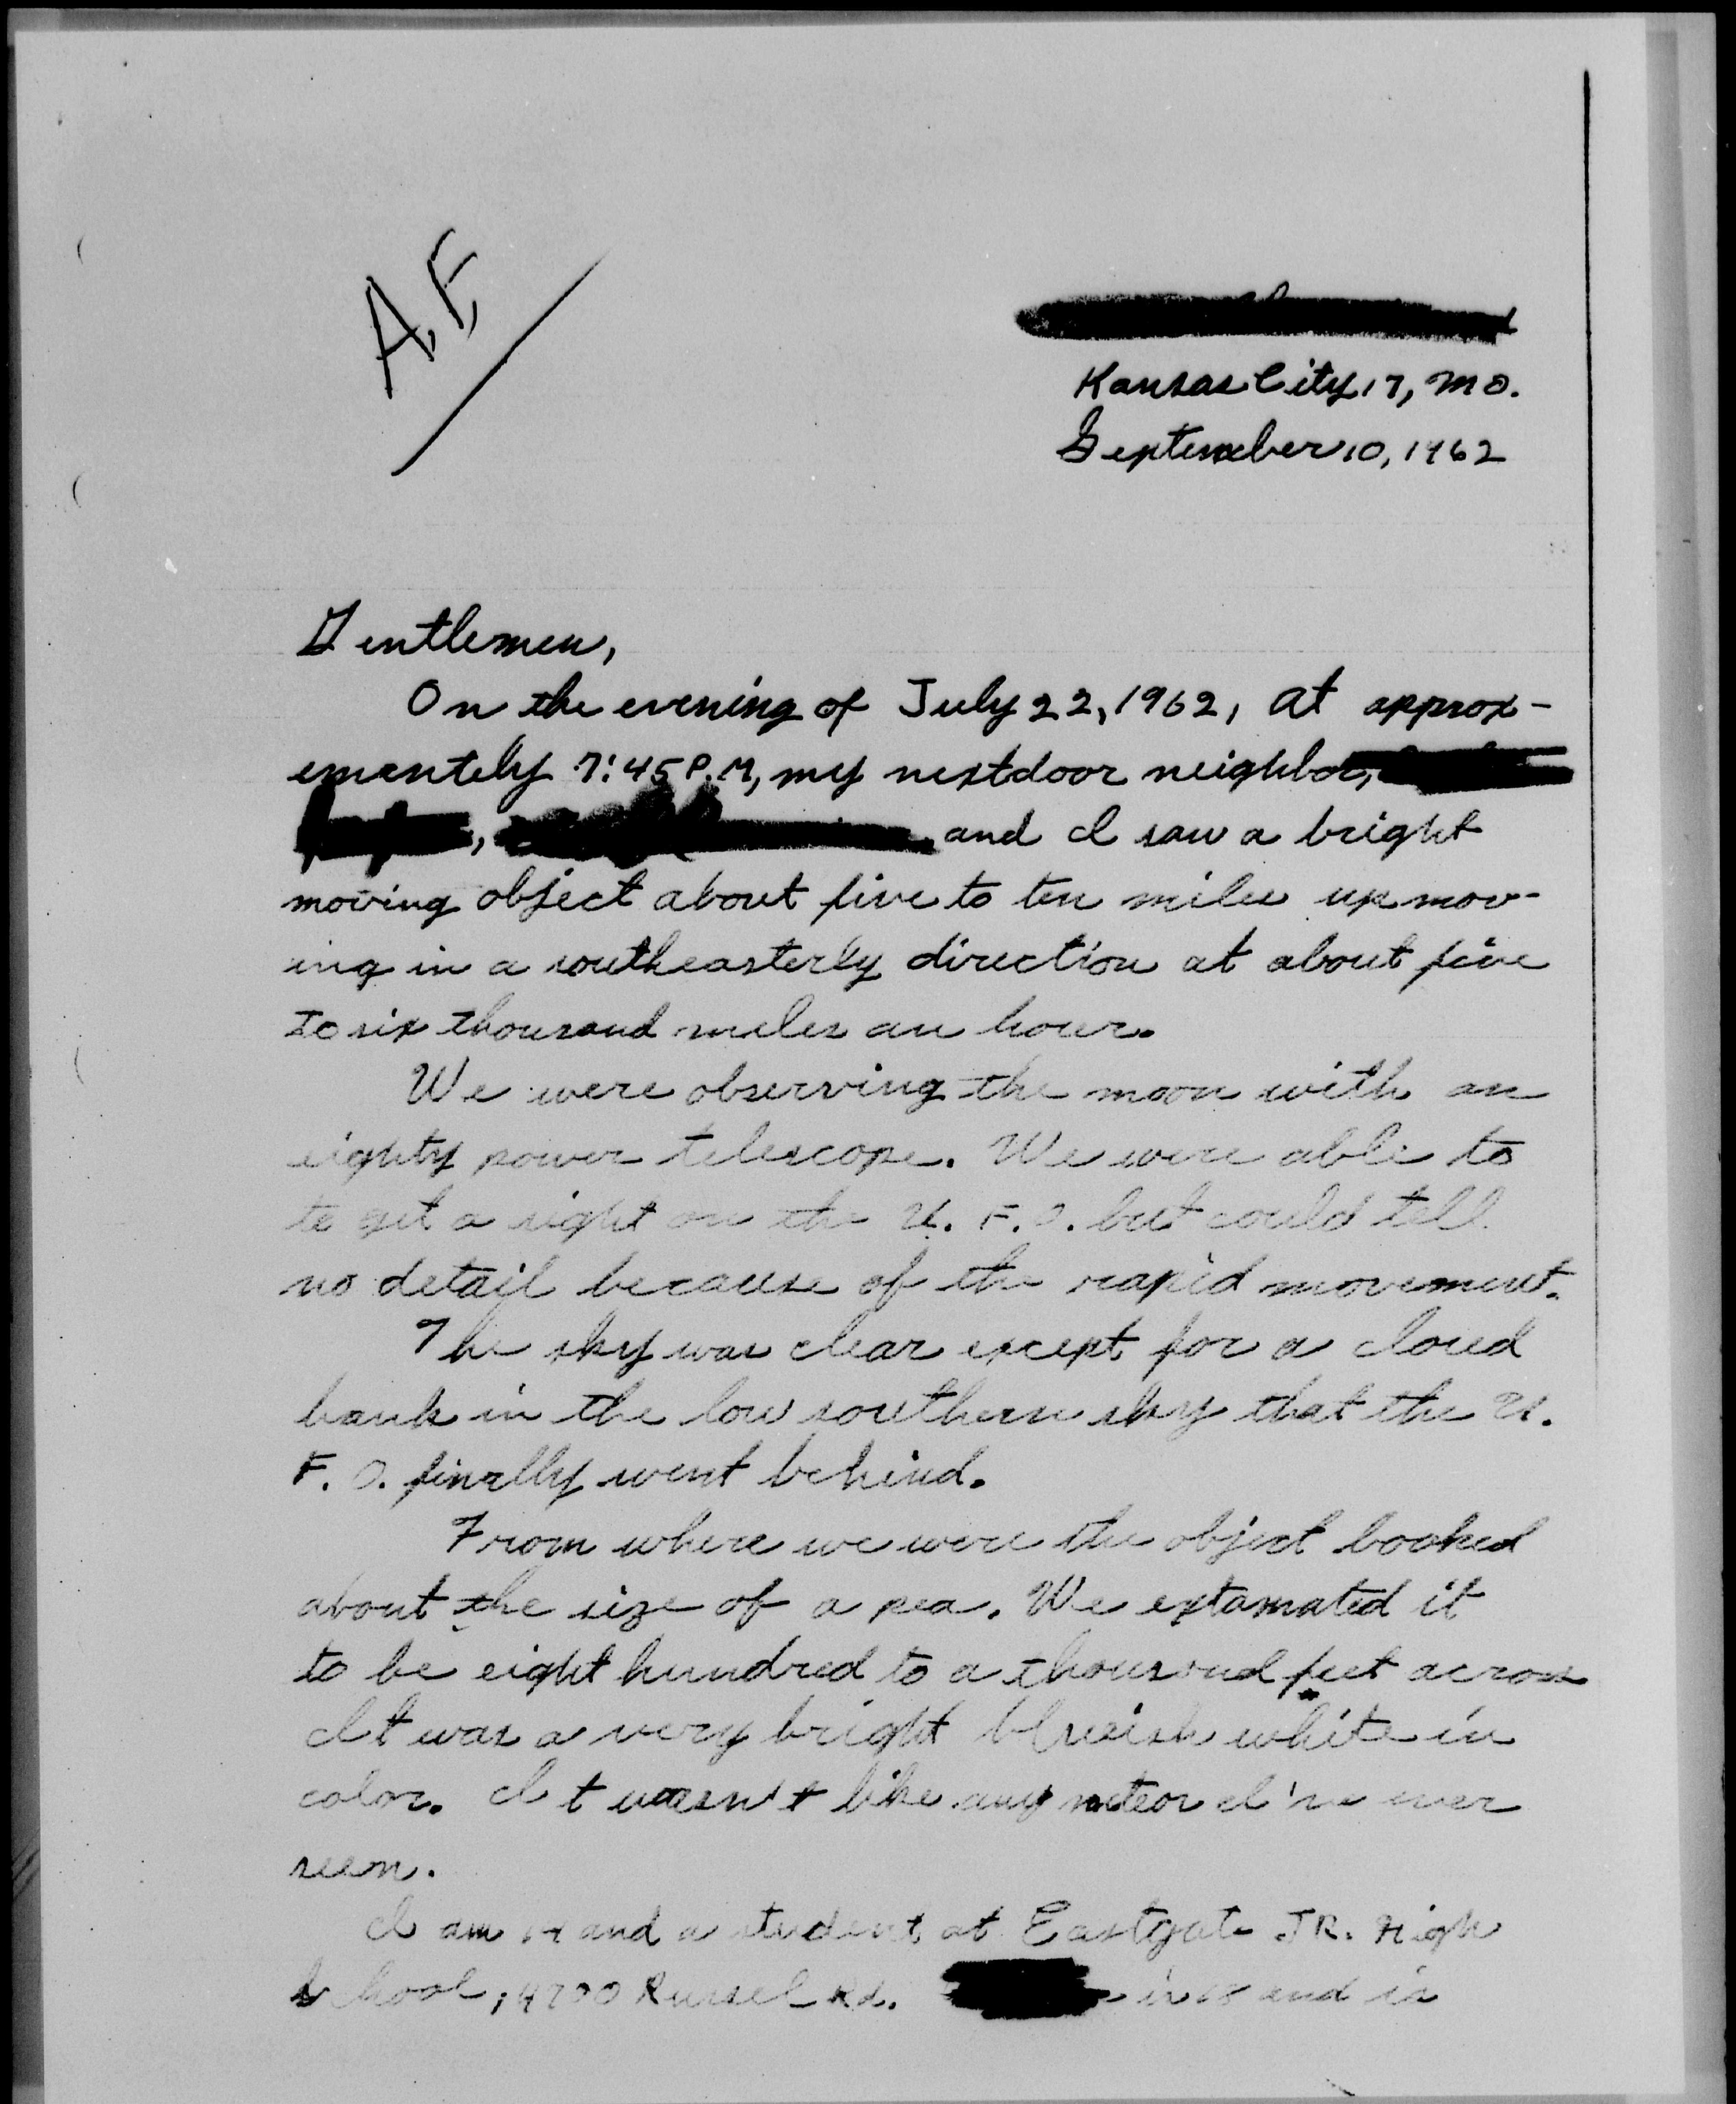 A.F.
Kansas City 17, Mo.
September 10, 1962
Gentlemen,
On the evening of July 22, 1962, at approx-
ementely 7:45 P.M, my nextdoor neighbor,
, and I saw a bright
moving object about five to ten miles up mov-
ing in a southeasterly direction at about five
to six thousand miles an hour.
We were observing the moon with an
eighty power telescope. We were able to
to get a sight on the U. F. O. but could tell
no detail because of the rapid movement.
The sky was clear except for a cloud
bank in the low southern sky that the U.
F. O. finally went behind.
From where we were the object looked
about the size of a pea. We extamated it
to be eight hundred to a thousand feet across
It was a very bright blueish white in
color. It wasn't like any meteor I've ever
seen.
I am 14 and a student at Eastgate JR. High
School, 4700 Russel Rd. is and is